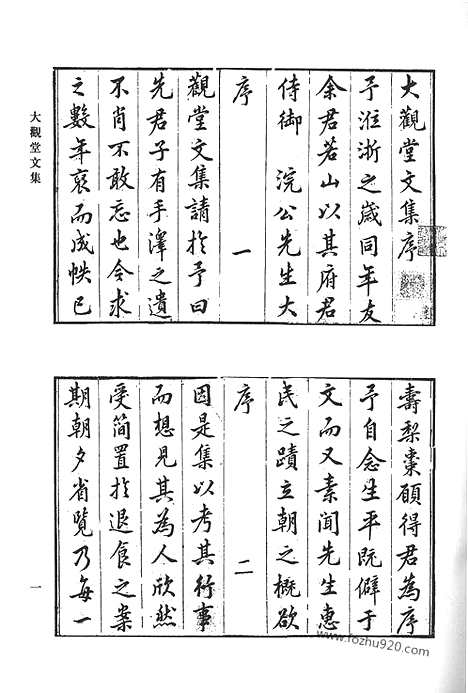 大觀堂文集序
予涖浙之歲同年友
余君若山以其府君
侍御 浣公先生大
序 一
觀堂文集請於予曰
先君子有手澤之遺
不肖不敢忘也今求
之數年裒而成帙已
大觀堂文集
壽梨棗願得君為序
予自念生平既僻于
文而又素聞先生惠
民之蹟立朝之概欲
序 二
因是集以考其行事
而想見其為人欣然
受簡置於退食之案
期朝夕省覽乃每一
一
www.fozhu920.com